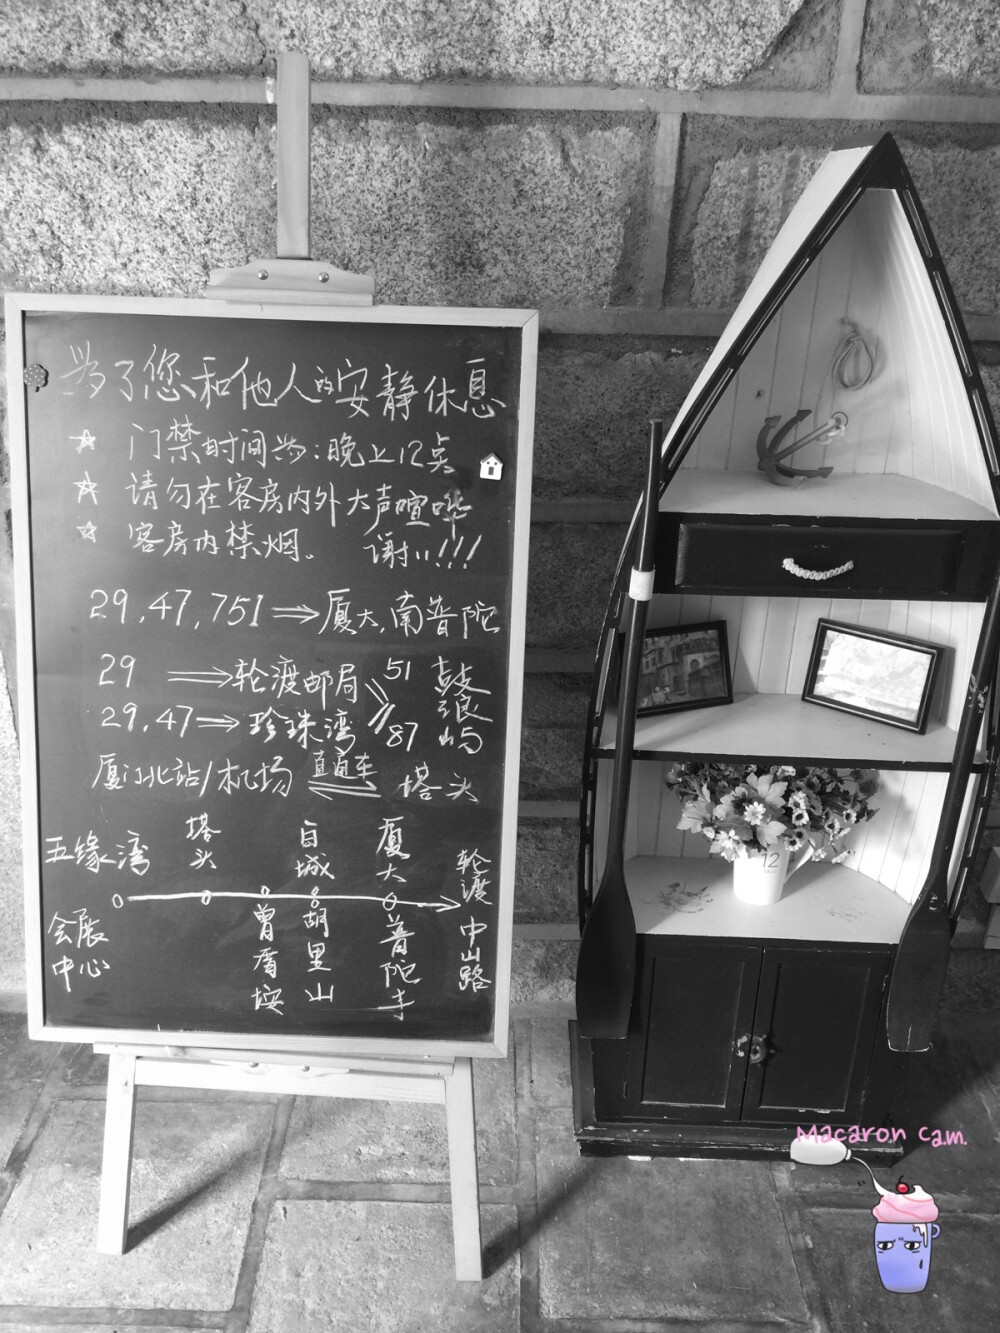 为了您和他人的安静休息
☆ 门禁时间为:晚上12点
☆ 请勿在客房内外大声喧哗
☆ 客房内禁烟。 谢谢!!!
29,47,751⇒厦大,南普陀
29 ⇒轮渡邮局 51 鼓浪屿
29,47⇒珍珠湾 87
厦门北站/机场 直通车 塔头
五缘湾 塔头 白城 厦大 轮渡
会展中心 曾厝垵 胡里山 普陀寺 中山路
12
Macaron cam.